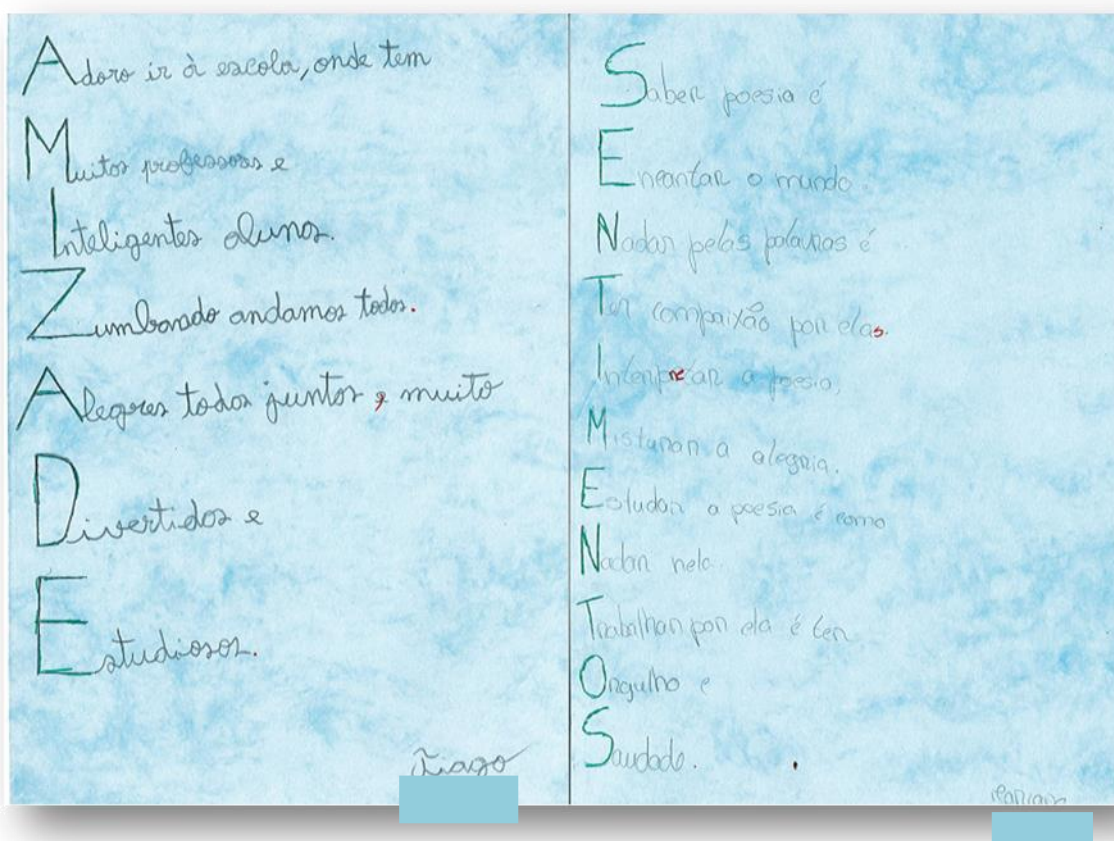 Adoro ir à escola, onde tem
Muitos professores e
Inteligentes alunos.
Zumbando andamos todos.
Alegres todos juntos, muito
Divertidos e
Estudiosos.
Tiago
Saber poesia é
Encantar o mundo.
Nadar pelas palavras é
Ter compaixão por elas.
Interpretar a poesia,
Misturar a alegria.
Estudar a poesia é como
Nadar nela.
Trabalhar por ela é ter
Orgulho e
Saudade.